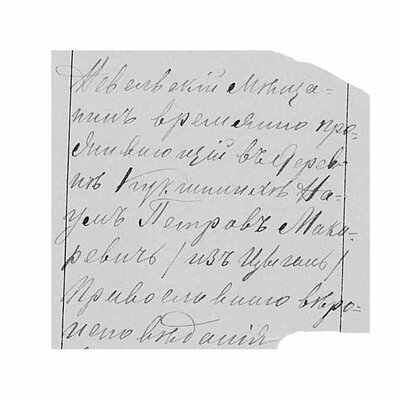 Невельскій мѣща=
нинъ временно про=
живающій въ дерев=
нѣ Наумъ
Петровъ Мака=
ревичъ /изъ Цыганъ/
Православнаго вѣро=
исповѣданія